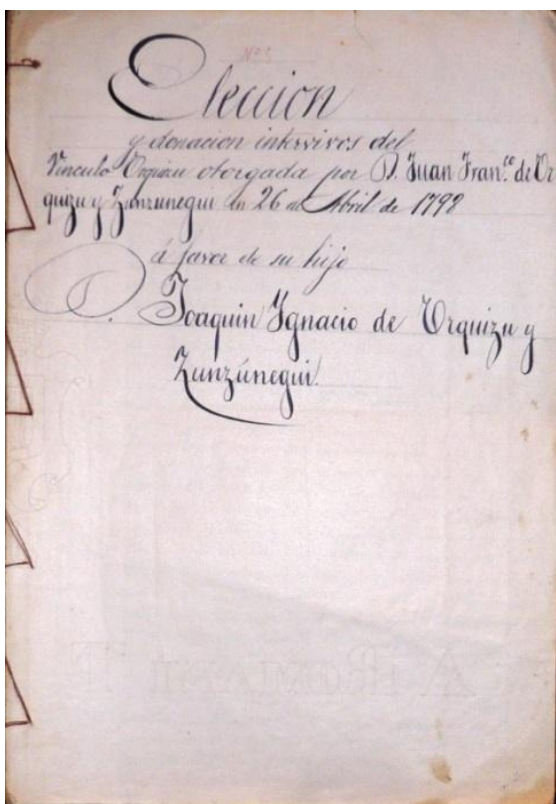 Nº 3
Eleccion
y donacion intervivos del
Vinculo Orquizu otorgada por D. Juan Fran.co de Or
quizu y Zunzunegui en 26 de Abril de 1798
á favor de su hijo
D. Joaquin Ygnacio de Orquizu y
Zunzúnegui.